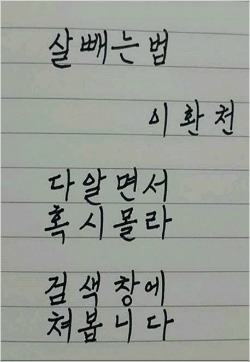 살빼는법
이환천
다알면서
혹시몰라
검색창에
쳐봅니다